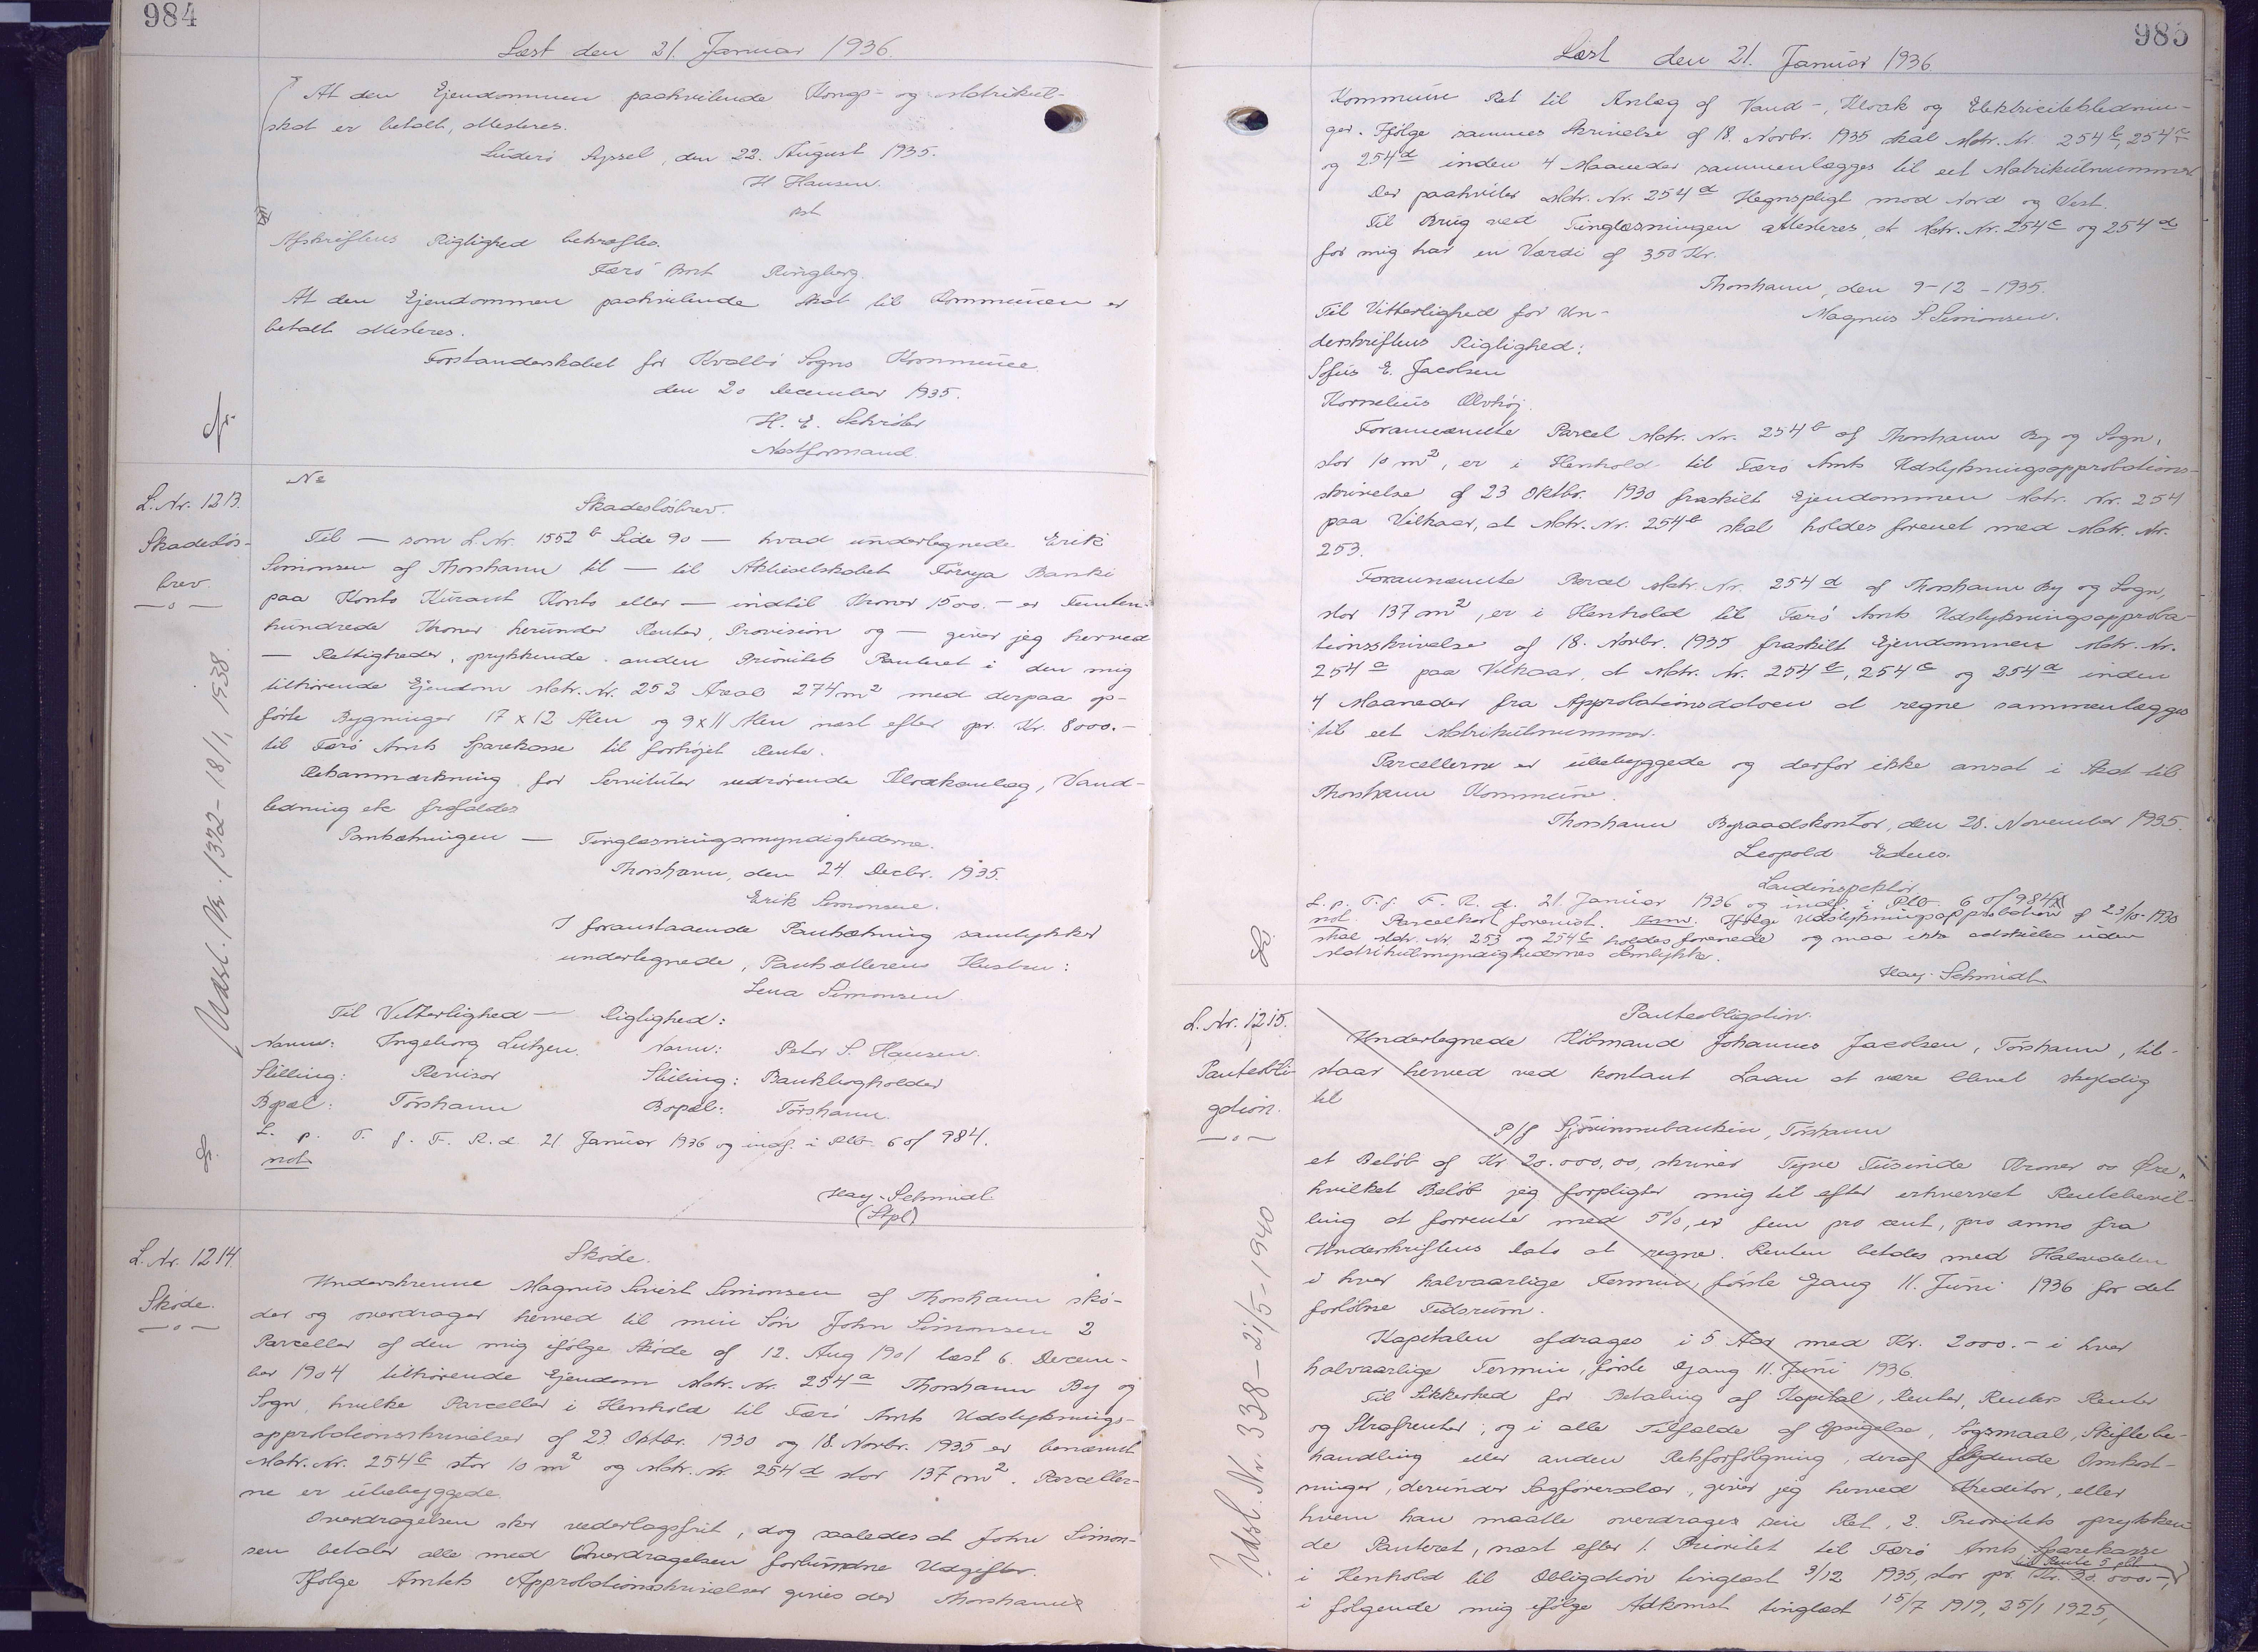 984
Læst den 21. Januar 1936.
At den Ejendommen paahvilende Konge- og Matrikul-
skat er betalt, attesteres.
Suderø Syssel, den 22. August 1935.
H Hansen.
Ast
Afskriftens Rigtighed bekræftes.
Færø Amt Ringberg.
At den Ejendommen paahvilende Skat til Kommunen er
betalt attesteres.
Forstanderskabet for Kvalbø Sogns Kommune
den 20 December 1935.
H. E. Schrøter
Næstformand.
L. Nr. 1213.
Skadesløs-
brev.
Udsl. Nr. 1372 - 18/1, 1938.
No
Skadesløsbrev.
Til — som L. Nr. 1552 b Side 90 — hvad undertegnede Erik
Simonsen af Thorshavn til — til Aktieselskabet Føroya Banki
paa Konto Kurant Konto eller — indtil Kroner 1500.- er Femten-
hundrede Kroner herunder Renter, Provision og — giver jeg herved
— Rettigheder, oprykkende anden Prioritets Panteret i den mig
tilhørende Ejendom Matr. Nr. 252 Areal 274 m² med derpaa op-
førte Bygninger 17 x 12 Alen og 9 x 11 Alen næst efter opr. Kr. 8000.-
til Færø Amts Sparekasse til forhøjet Rente.
Retsanmærkning for Servituter vedrørende Kloakanlæg, Vand-
ledning etc frafaldes
Pantsætningen — Tinglæsningsmyndighederne.
Thorshavn, den 24. Decbr. 1935.
Erik Simonsen.
I foranstaaende Pantsætning samtykker
undertegnede, Pantsætterens Hustru:
Lena Simonsen
Til Vitterlighed — Rigtighed:
Navn: Ingeborg Lützen. Navn: Peter S. Hansen.
Stilling: Revisor Stilling: Bankbogholder
Bopæl: Tórshavn Bopæl: Tórshavn.
L. p. T. f. F. R. d. 21 Januar 1936 og indf. i Prot. 6 af 984.
not.
Kay-Schmidt
(Stpl)
L. Nr. 1214.
Skøde.
Skøde.
Underskrevne Magnus Sivert Simonsen af Thorshavn skø-
der og overdrager herved til min Søn John Simonsen 2
Parceller af den mig ifølge Skøde af 12. Aug 1901 læst 6. Decem-
ber 1904 tilhørende Ejendom Matr. Nr. 254 a Thorshavn By og
Sogn, hvilke Parceller i Henhold til Færø Amts Udstyknings-
approbationsskrivelser af 23. Oktbr. 1930 og 18. Novbr. 1935 er benævnt
Matr. Nr. 254 b stor 10 m² og Matr. Nr 254 d stor 137 m². Parceller-
ne er ubebyggede.
Overdragelsen sker vederlagsfrit, dog saaledes at John Simon-
sen betaler alle med Overdragelsen forbundne Udgifter.
Ifølge Amtets Approbationsskrivelser gives der Thorshavns
985
Læst den 21. Januar 1936.
Kommune Ret til Anlæg af Vand-, Kloak og Elektricitetslednin-
ger. Ifølge sammes Skrivelse af 18. Novbr. 1935 skal Matr. Nr. 254 b, 254 c
og 254 d inden 4 Maaneder sammenlægges til eet Matrikulnummer
Der paahviler Matr. Nr. 254 d Hegnspligt mod Nord og Vest.
Til Brug ved Tinglæsningen attesteres, at Matr. Nr. 254 c og 254 d
for mig har en Værdi af 350 Kr.
Thorshavn, den 9-12-1935.
Til Vitterlighed for Un- Magnus S. Simonsen.
derskriftens Rigtighed:
Sofus E. Jacobsen
Kornelius Ølvhøj.
Forannævnte Parcel Matr. Nr. 254 b af Thorshavn By og Sogn,
stor 10 m², er i Henhold til Færø Amts Udstykningsapprobations-
skrivelse af 23 Oktbr. 1930 fraskilt Ejendommen Matr. Nr. 254
paa Vilkaar, at Matr. Nr. 254 b skal holdes forenet med Matr. Nr.
253.
Forannævnte Parcel Matr. Nr. 254 d af Thorshavn By og Sogn,
stor 137 m², er i Henhold til Færø Amts Udstykningsapproba-
tionsskrivelse af 18. Novbr. 1935 fraskilt Ejendommen Matr. Nr.
254 a paa Vilkaar, at Matr. Nr. 254 b, 254 c og 254 d inden
4 Maaneder fra Approbationsdatoen at regne sammenlægges
til eet Matrikulnummer.
Parcellerne er ubebyggede og derfor ikke ansat i Skat til
Thorshavn Kommune.
Thorshavn Byraadskontor, den 28. November 1935.
Leopold
Landinspektør
L. p. T. f. F. R. d. 21. Januar 1936 og indf. i Prot. 6 af 984
not. Parcelkort forevist. Anm. Ifølge Udstykningsapprobation af 23/10-1930
skal Matr. Nr. 253 og 254 b holdes forenede og maa ikke adskilles uden
Matrikulmyndighedernes Samtykke.
Kay-Schmidt
L. Nr. 1215.
Panteobli-
gation.
Udsl. Nr. 338 - 21/5-1940
Panteobligation.
Undertegnede Købmand Johannes Jacobsen, Tórshavn, til-
staar herved ved kontant Laan at være blevet skyldig
til
P/f Sjóvinnubankin, Tórshavn
et Beløb af Kr. 20.000,00, skriver Tyve Tusinde Kroner 00 Øre,
hvilket Beløb jeg forpligter mig til efter erhvervet Rentebevil-
ling at forrente med 5%, er fem pro cent, pro anno fra
Underskriftens Dato at regne. Renten betales med Halvdelen
i hver halvaarlige Termin, første Gang 11. Juni 1936 for det
forløbne Tidsrum.
Kapitalen afdrages i 5 Aar med Kr. 2000.- i hver
halvaarlige Termin, første Gang 11. Juni 1936.
Til Sikkerhed for Betaling af Kapital, Renter, Renters Renter
og Strafrenter; og i alle Tilfælde af Opsigelse, Søgsmaal, Skiftebe-
handling eller anden Retsforfølgning, deraf flydende Omkost-
ninger, derunder Sagførersalær, giver jeg herved Kreditor, eller
hvem han maatte overdrage sin Ret, 2. Prioritets oprykken-
de Panteret, næst efter 1. Prioritet til Færø Amts Sparekasse
til Rente 5 pct
i Henhold til Obligation tinglæst 3/12 1935, stor opr. Kr. 30.000.-,
i følgende mig ifølge Adkomst tinglæst 15/7 1919, 25/1 1925,